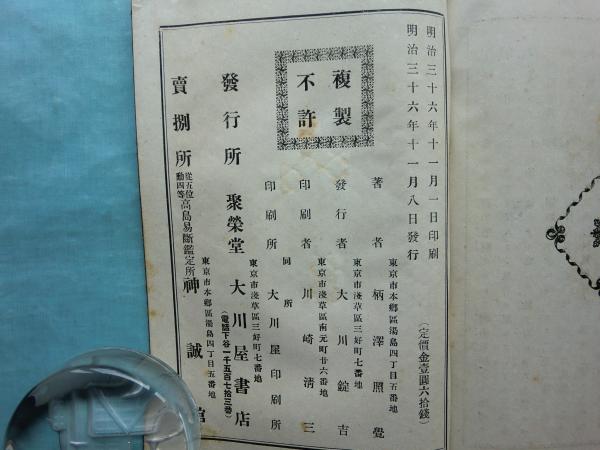 明治三十六年十一月一日印刷
明治三十六年十一月八日發行
(定價金壹圓六拾錢)
複製
不許
東京市本鄕區湯島四丁目五番地
著者 柄澤照覺
東京市淺草區三好町七番地
發行者 大川錠吉
東京市淺草區南元町廿六番地
印刷者 川崎淸三
同所
印刷所 大川屋印刷所
東京市淺草區三好町七番地
發行所 聚榮堂 大川屋書店
(電話下谷一千五百七拾三番)
東京市本鄕區湯島四丁目五番地
賣捌所 從五位勳四等高島易斷鑑定所神誠館